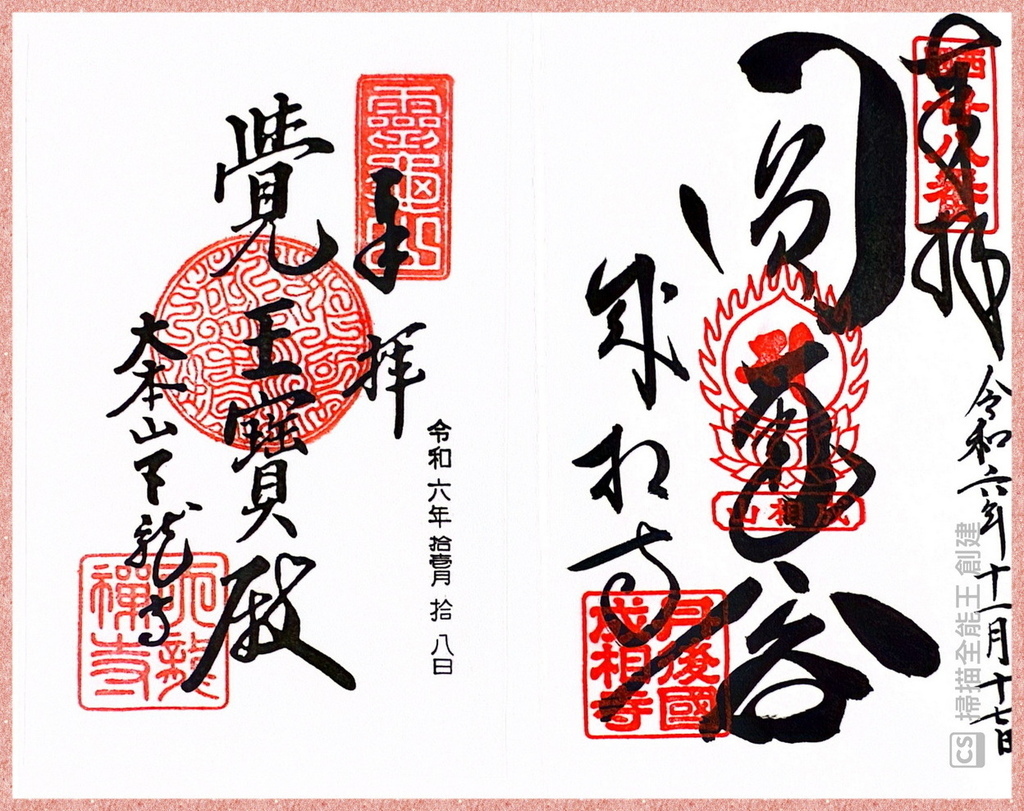 奉拝
西國廿八番
令和六年十一月十七日
成相山
成相寺
丹後國
成相寺
奉拝
靈龜山
令和六年拾壹月拾八日
覺王寶殿
大本山天龍寺
天龍
禪寺
CS 掃描全能王 創建